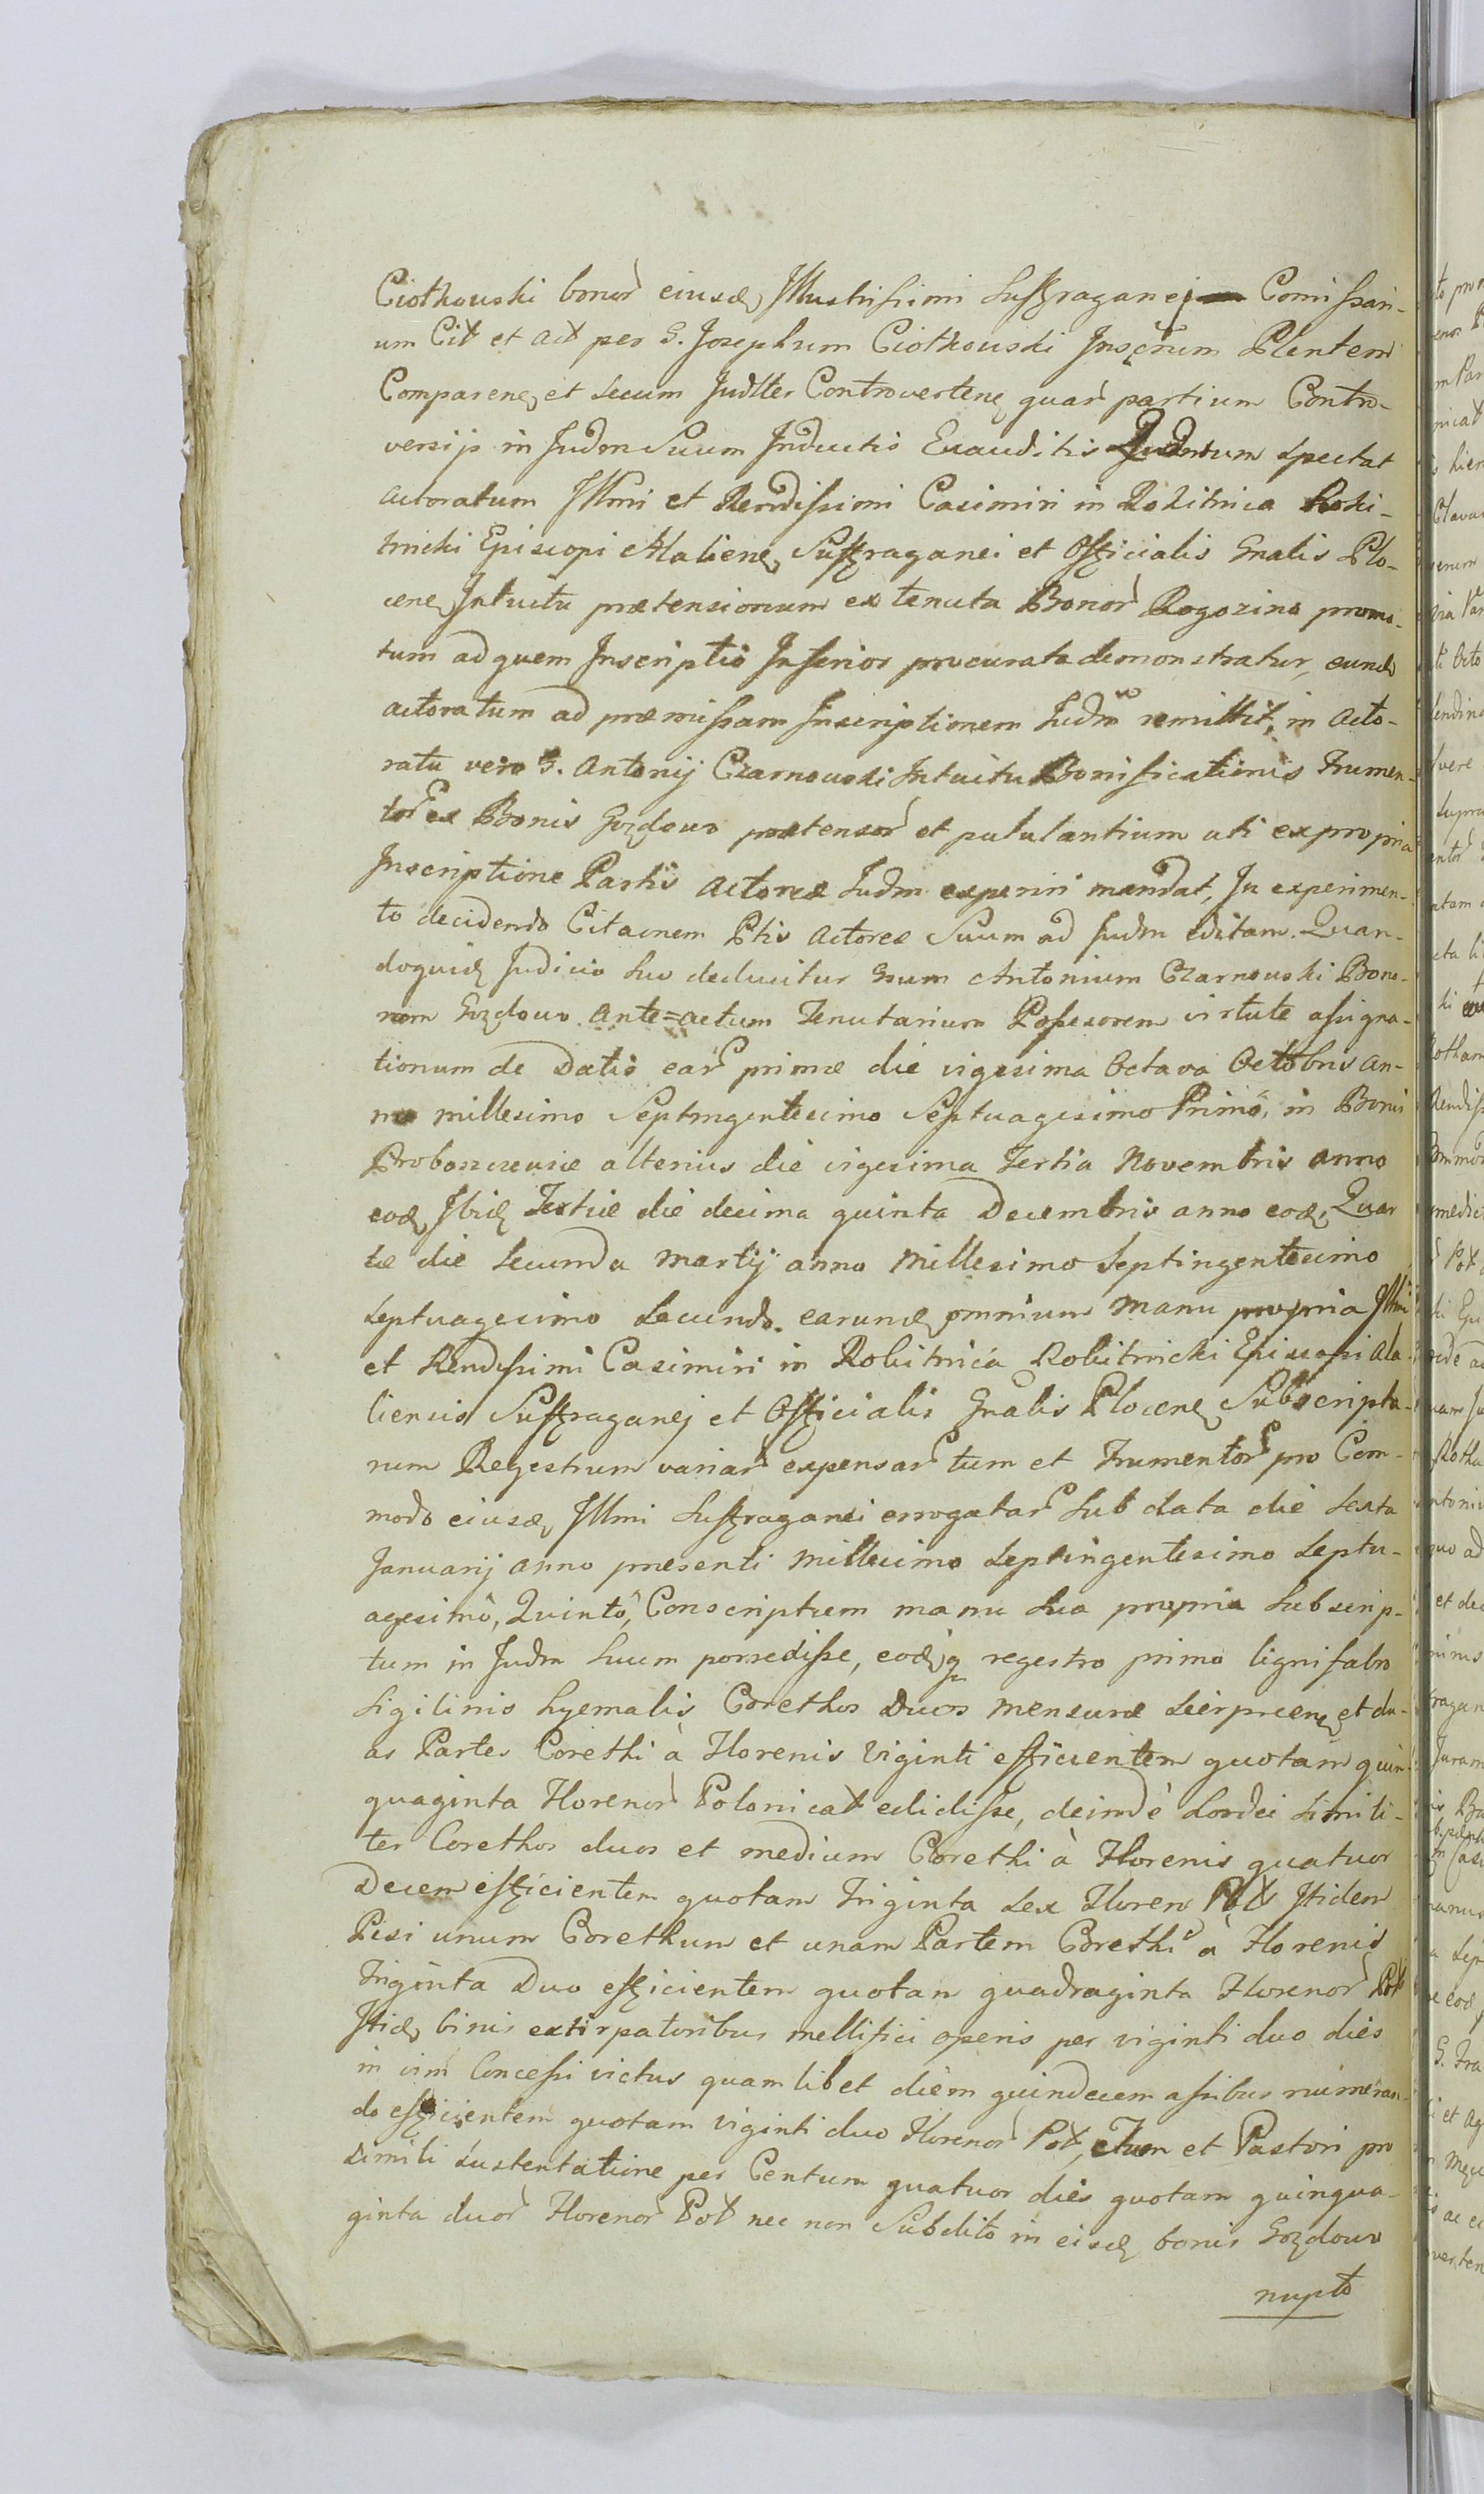 Ciołkouski bonor eiusd, Illustrissimi Suffraganej Comissari-
um Cit et Act per G. Josephum Ciołkouski Insernum Plentem
Comparen, et secum Judlter Controverten, quar partium Contro-
versijs in Judm Suum Inductis Exauditis Quantum spectat
actoratum Illmi et Rendissimi Casimiri in Rokitnica Roki-
tnicki Episcopi Alalien, Suffraganei et Officialis Gnalis Plo-
cen, Intuitu prætensionum ex tenuta Bonor Rogozino promo-
tum ad quem Inscriptio Inferior procurata demonstratur, eund
actoratum ad præmissam Inscriptionem Judm remittit, in acto-
ratu vero G. Antonij Czarnouski Intuitu Bonificationis Frumen-
tor ex Bonis Gozdowo prætensor et pululantium uti ex propria
Inscriptione Partis Actoreæ Judm experiri mandat, In experimen-
to decidendo Citacnem Ptis Actoreæ Suum ad Judm editam. Quan-
doquid Judicio suo deducitur Gsum Antonium Czarnouski Bono-
rum Gozdowo Ante=actum Tenutarium Possesorem virtute assigna-
tionum de Datis ear primæ die vigesima Octava Octobris an-
no millesimo Septingentesimo Septuagesimo Primo, in Bonis
Proboszczewice alterius die vigesima Tertia Novembris anno
eod, Ibid Tertiæ die decima quinta Decembris anno eod, Quar
tæ die secunda Martij anno Millesimo Septingentesimo
Septuagesimo Secundo. earund omnium manu propria Illmi
et Rendissimi Casimiri in Rokitnica Rokitnicki Episcopi Ala-
liensis Suffraganej et Officialis Gnalis Plocen, Subscripta-
rum Regestrum variar expensar tum et Frumentor pro Com-
modo eiusd, Illmi Suffraganei errogatar Sub data die sexta
Januarij anno præsenti Millesimo Septingentesimo Septu-
agesimo, Quinto, Conscriptum manu sua propria subscrip-
tum in Judm suum porredisse, eodq regestro primo lignifabro
Sigilinis hyemalis Corethos Duos mensuræ Sierpcen, et du-
as Partes Corethi à Florenis Viginti efficientem quotam quin-
quaginta Florenor Polonicat edidisse, deinde Hordei simili-
ter Corethos duos et medium Corethi à Florenis quatuor
Decem efficientem quotam Triginta Sex Floren Pol Itidem
Pisi unum Corethum et unam Partem Corethi à Florenis
Triginta Duo efficientem quotam quadraginta Florenor Pol
Itid, binis extirpatoribus mellifici operis per viginti duo dies
in vim Concessi victus quamlibet diem quindecem assibus numeran-
do efficientem quotam viginti duo Florenor Pol, tum et Pastori pro
simili sustentatione per Centum quatuor dies quotam quinqua-
ginta duor Florenor Pol nec non Subdito in eisd bonis Gozdowo
nupto